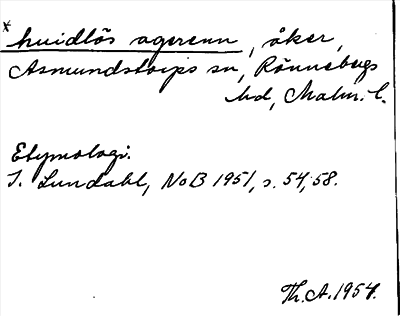 * huidlös agerenn, åker,
Asmundstorps sn, Rönnebergs
hd, Malm. l.
Etymologi.
I. Lundahl, NoB 1951, s. 54, 58.
Th. A. 1954.